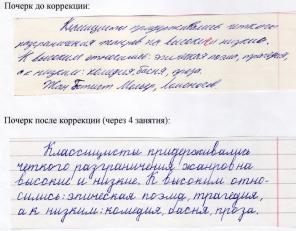 Почерк до коррекции:
Классицисты придерживались четкого
разграничения жанров на высокие и низкие.
К высоким относились: эпическая поэма, трагедия,
а к низким: комедия, басня, проза.
Жан Батист Мольер, Ломоносов.
Почерк после коррекции (через 4 занятия):
Классицисты придерживались
четкого разграничения жанров на
высокие и низкие. К высоким отно-
сились: эпическая поэма, трагедия,
а к низким: комедия, басня, проза.